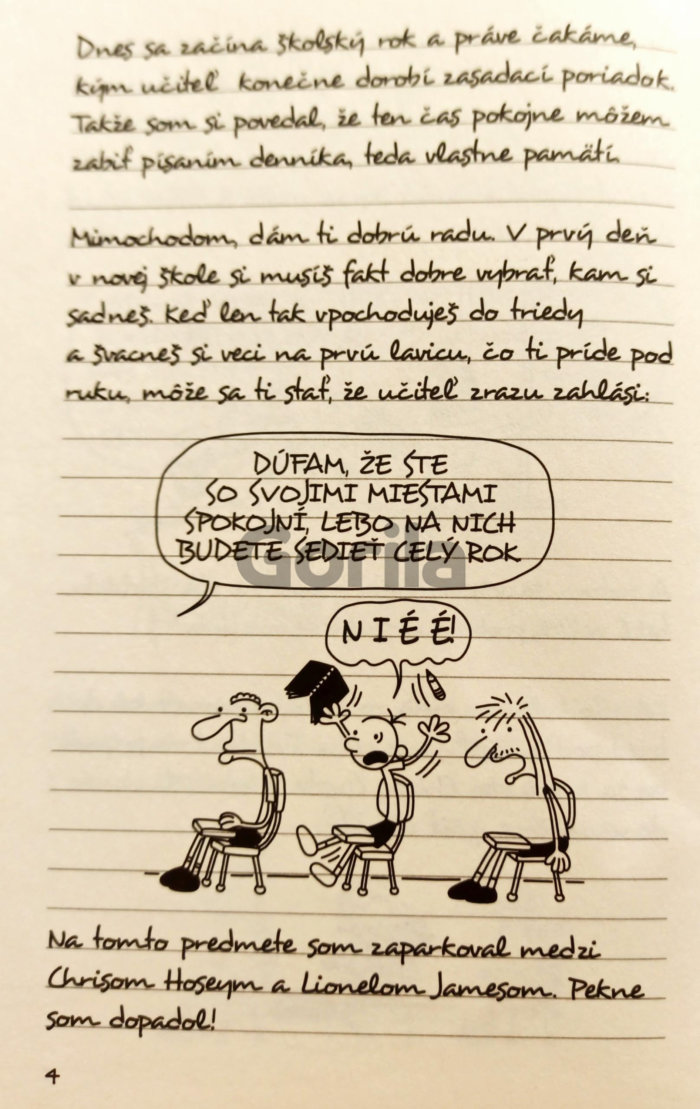 Dnes sa začína školský rok a práve čakáme,
kým učiteľ konečne dorobí zasadací poriadok.
Takže som si povedal, že ten čas pokojne môžem
zabiť písaním denníka, teda vlastne pamätí.
Mimochodom, dám ti dobrú radu. V prvý deň
v novej škole si musíš fakt dobre vybrať, kam si
sadneš. Keď len tak vpochoduješ do triedy
a švacneš si veci na prvú lavicu, čo ti príde pod
ruku, môže sa ti stať, že učiteľ zrazu zahlási:
DÚFAM, ŽE STE
SO SVOJIMI MIESTAMI
SPOKOJNÍ, LEBO NA NICH
BUDETE SEDIEŤ CELÝ ROK
Gorila
NIÉÉ!
Na tomto predmete som zaparkoval medzi
Chrisom Hoseym a Lionelom Jamesom. Pekne
som dopadol!
4